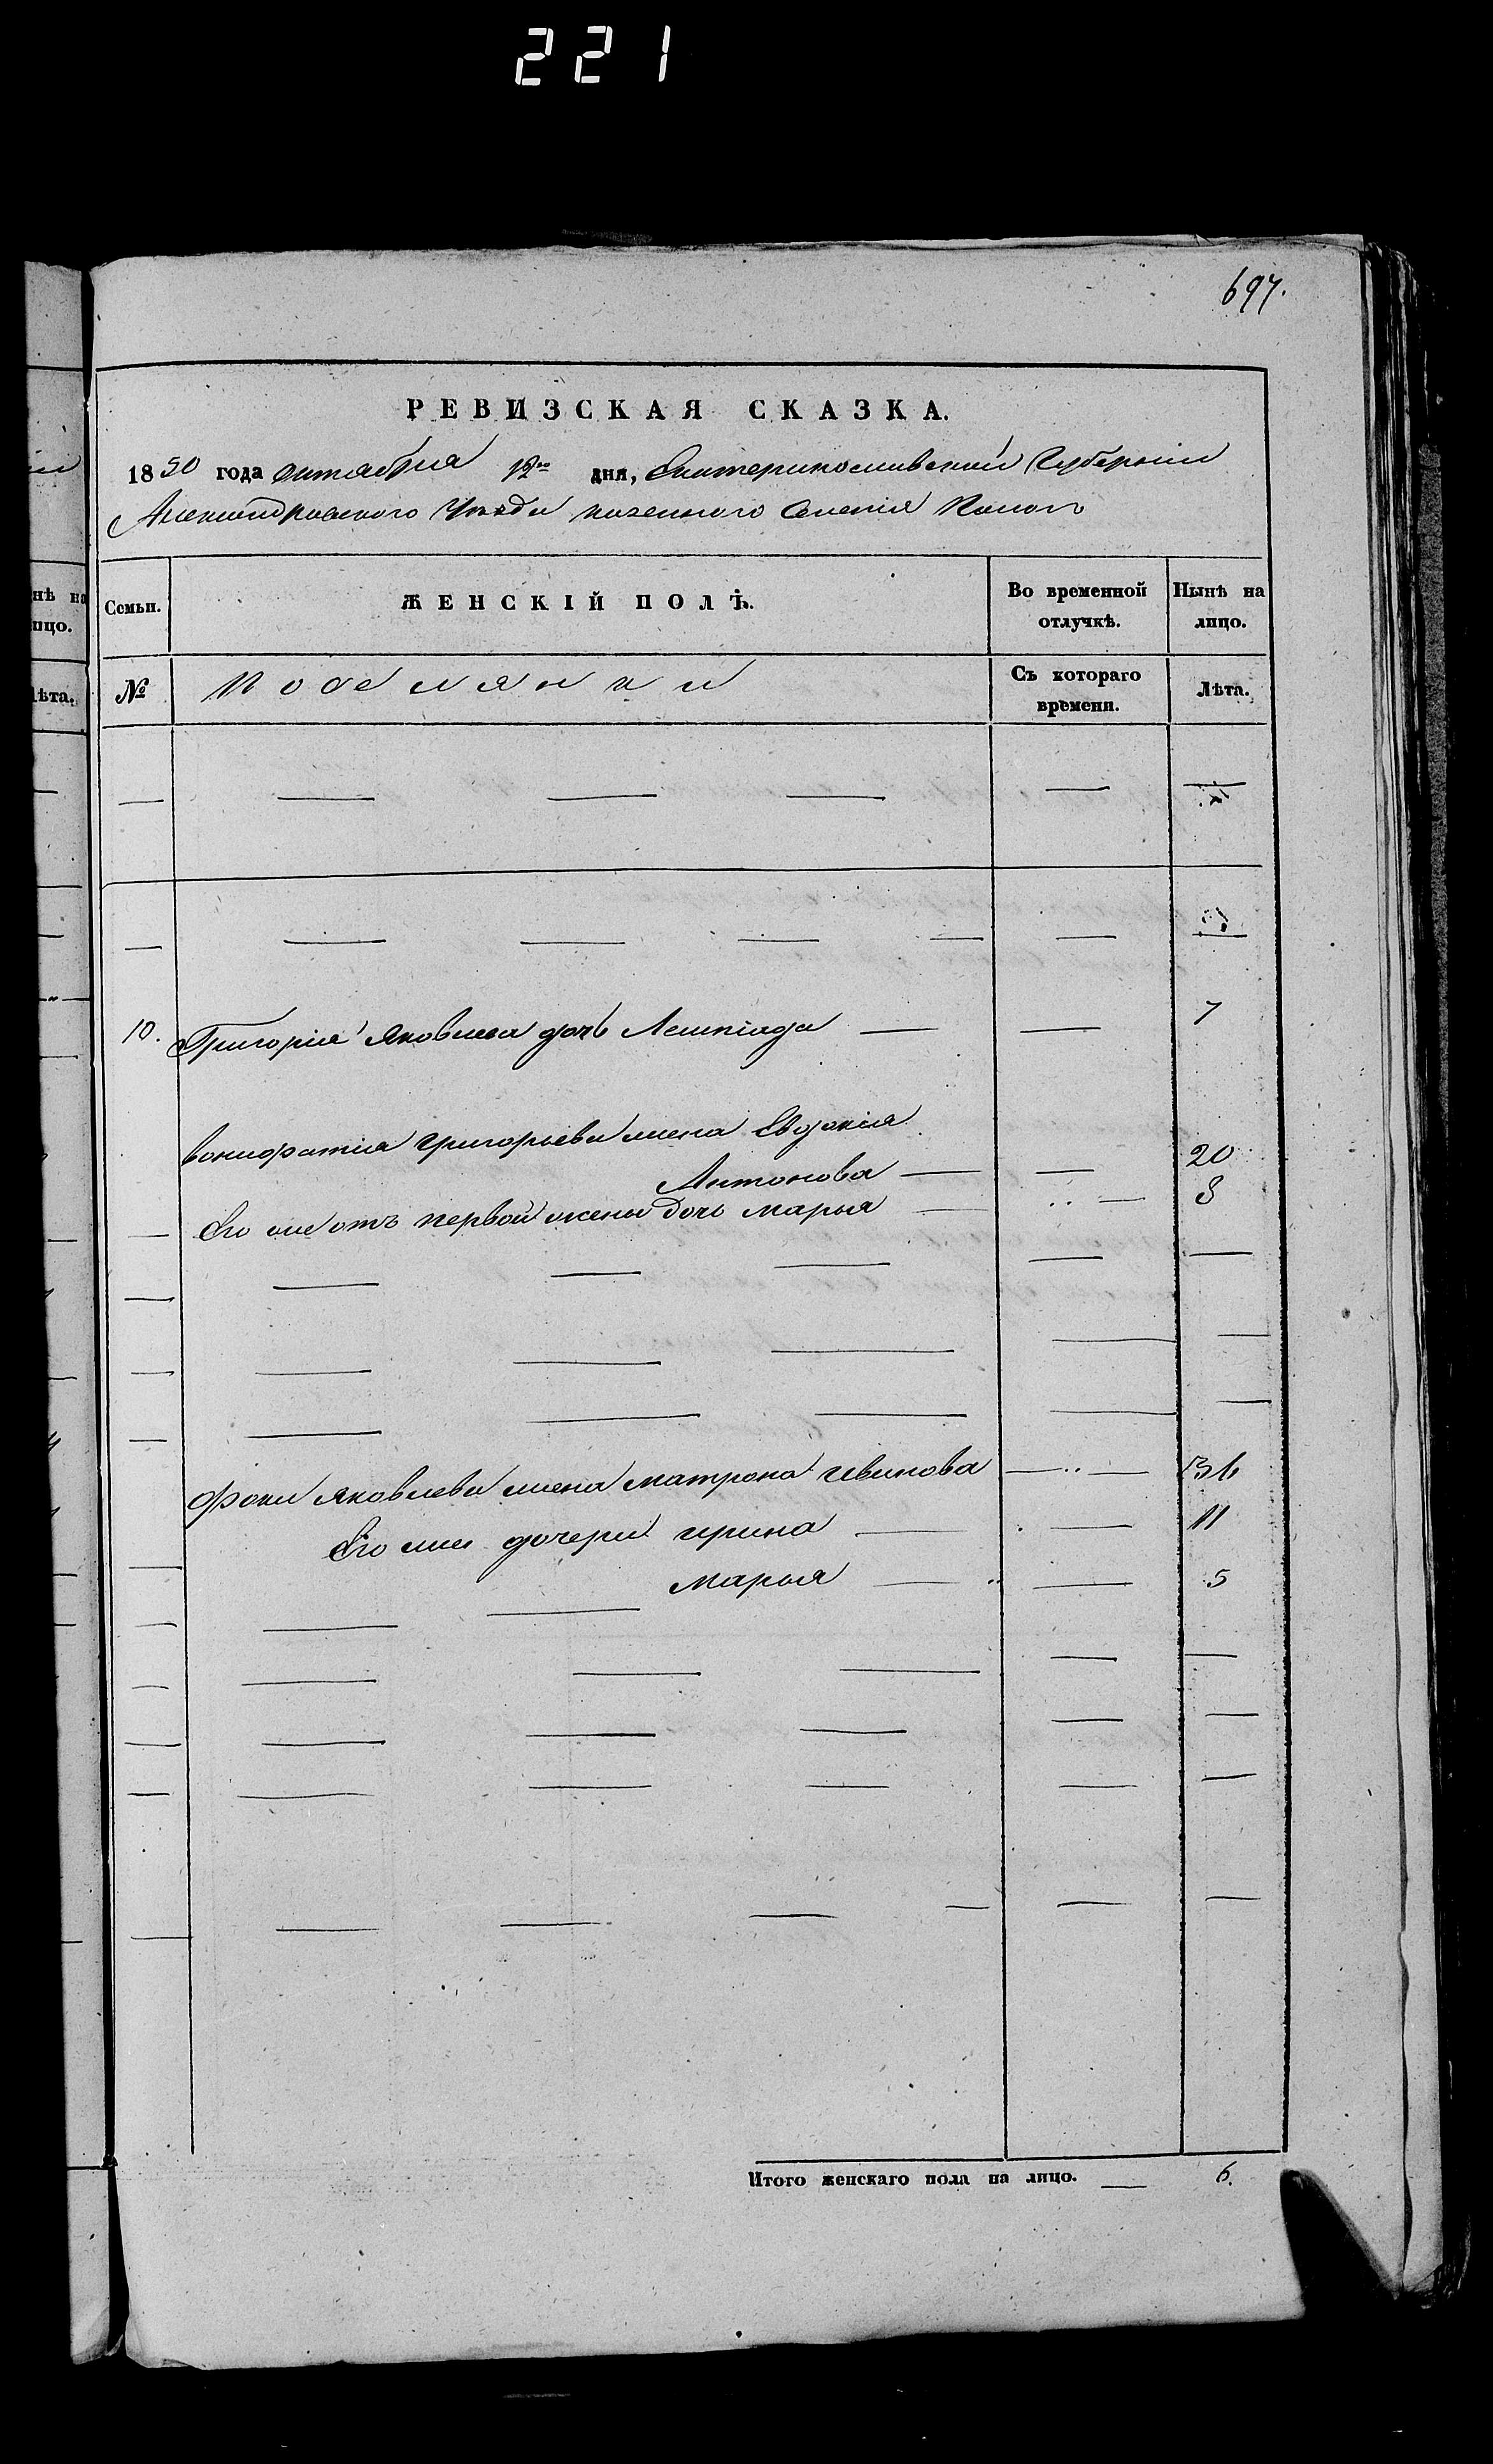 221
697.
РЕВИЗСКАЯ СКАЗКА.
1850 года октября 12го дня, Екатеринославской Губерніи
Александровского Уезда казенного Селенія Коног
Семьи.
ЖЕНСКІЙ ПОЛЪ.
Во временной отлучкѣ.
Нынѣ на лицо.
№
Поселянки
Съ котораго времени.
Лѣта.
10. Григорія Яковлева дочь Лемпіада — — 7
Вонифатия Григорьева жена Евдокія
Антонова — — 20
Его же отъ первой жены дочь Марья — — 8
Фоки Яковлева жена Матрона Ивинова — — 36
Его же дочери Ирина — — 11
Марья — — 5
Итого женскаго пола на лицо. — 6.
нѣ на
ицо.
Лѣта.